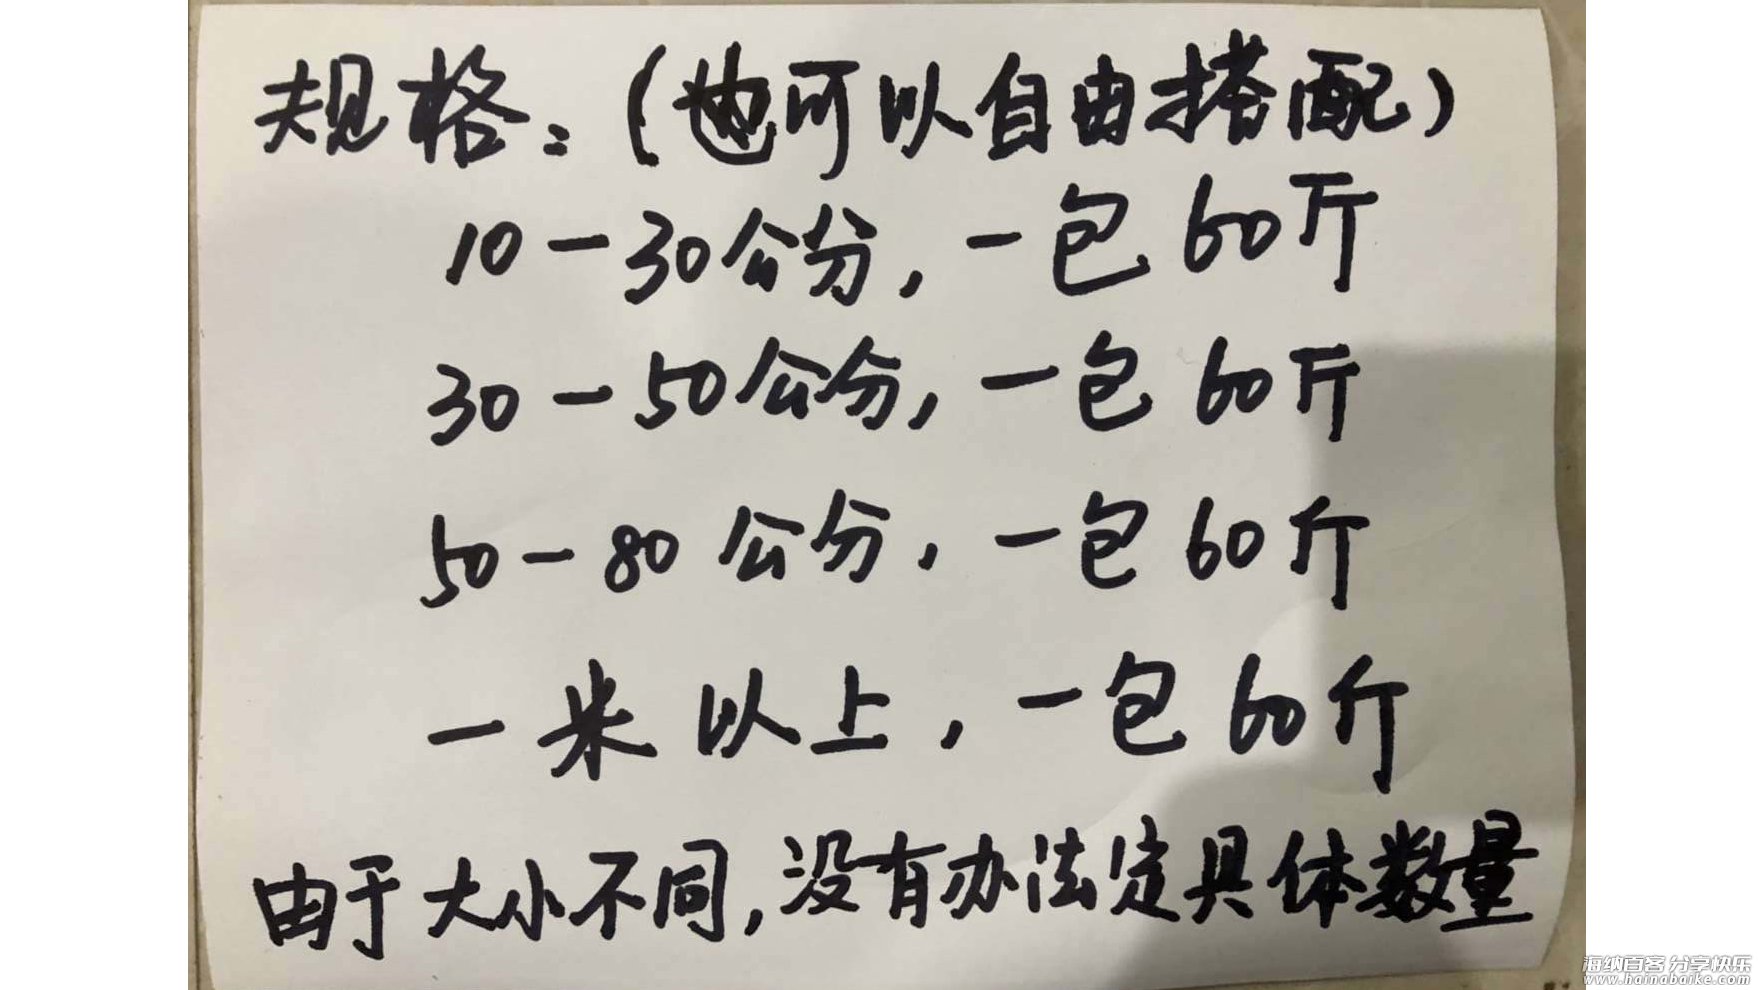 规格:(也可以自由搭配)
10-30公分,一包60斤
30-50公分,一包60斤
50-80公分,一包60斤
一米以上,一包60斤
由于大小不同,没有办法定具体数量
海纳百客 分享快乐
www.hainabaike.com